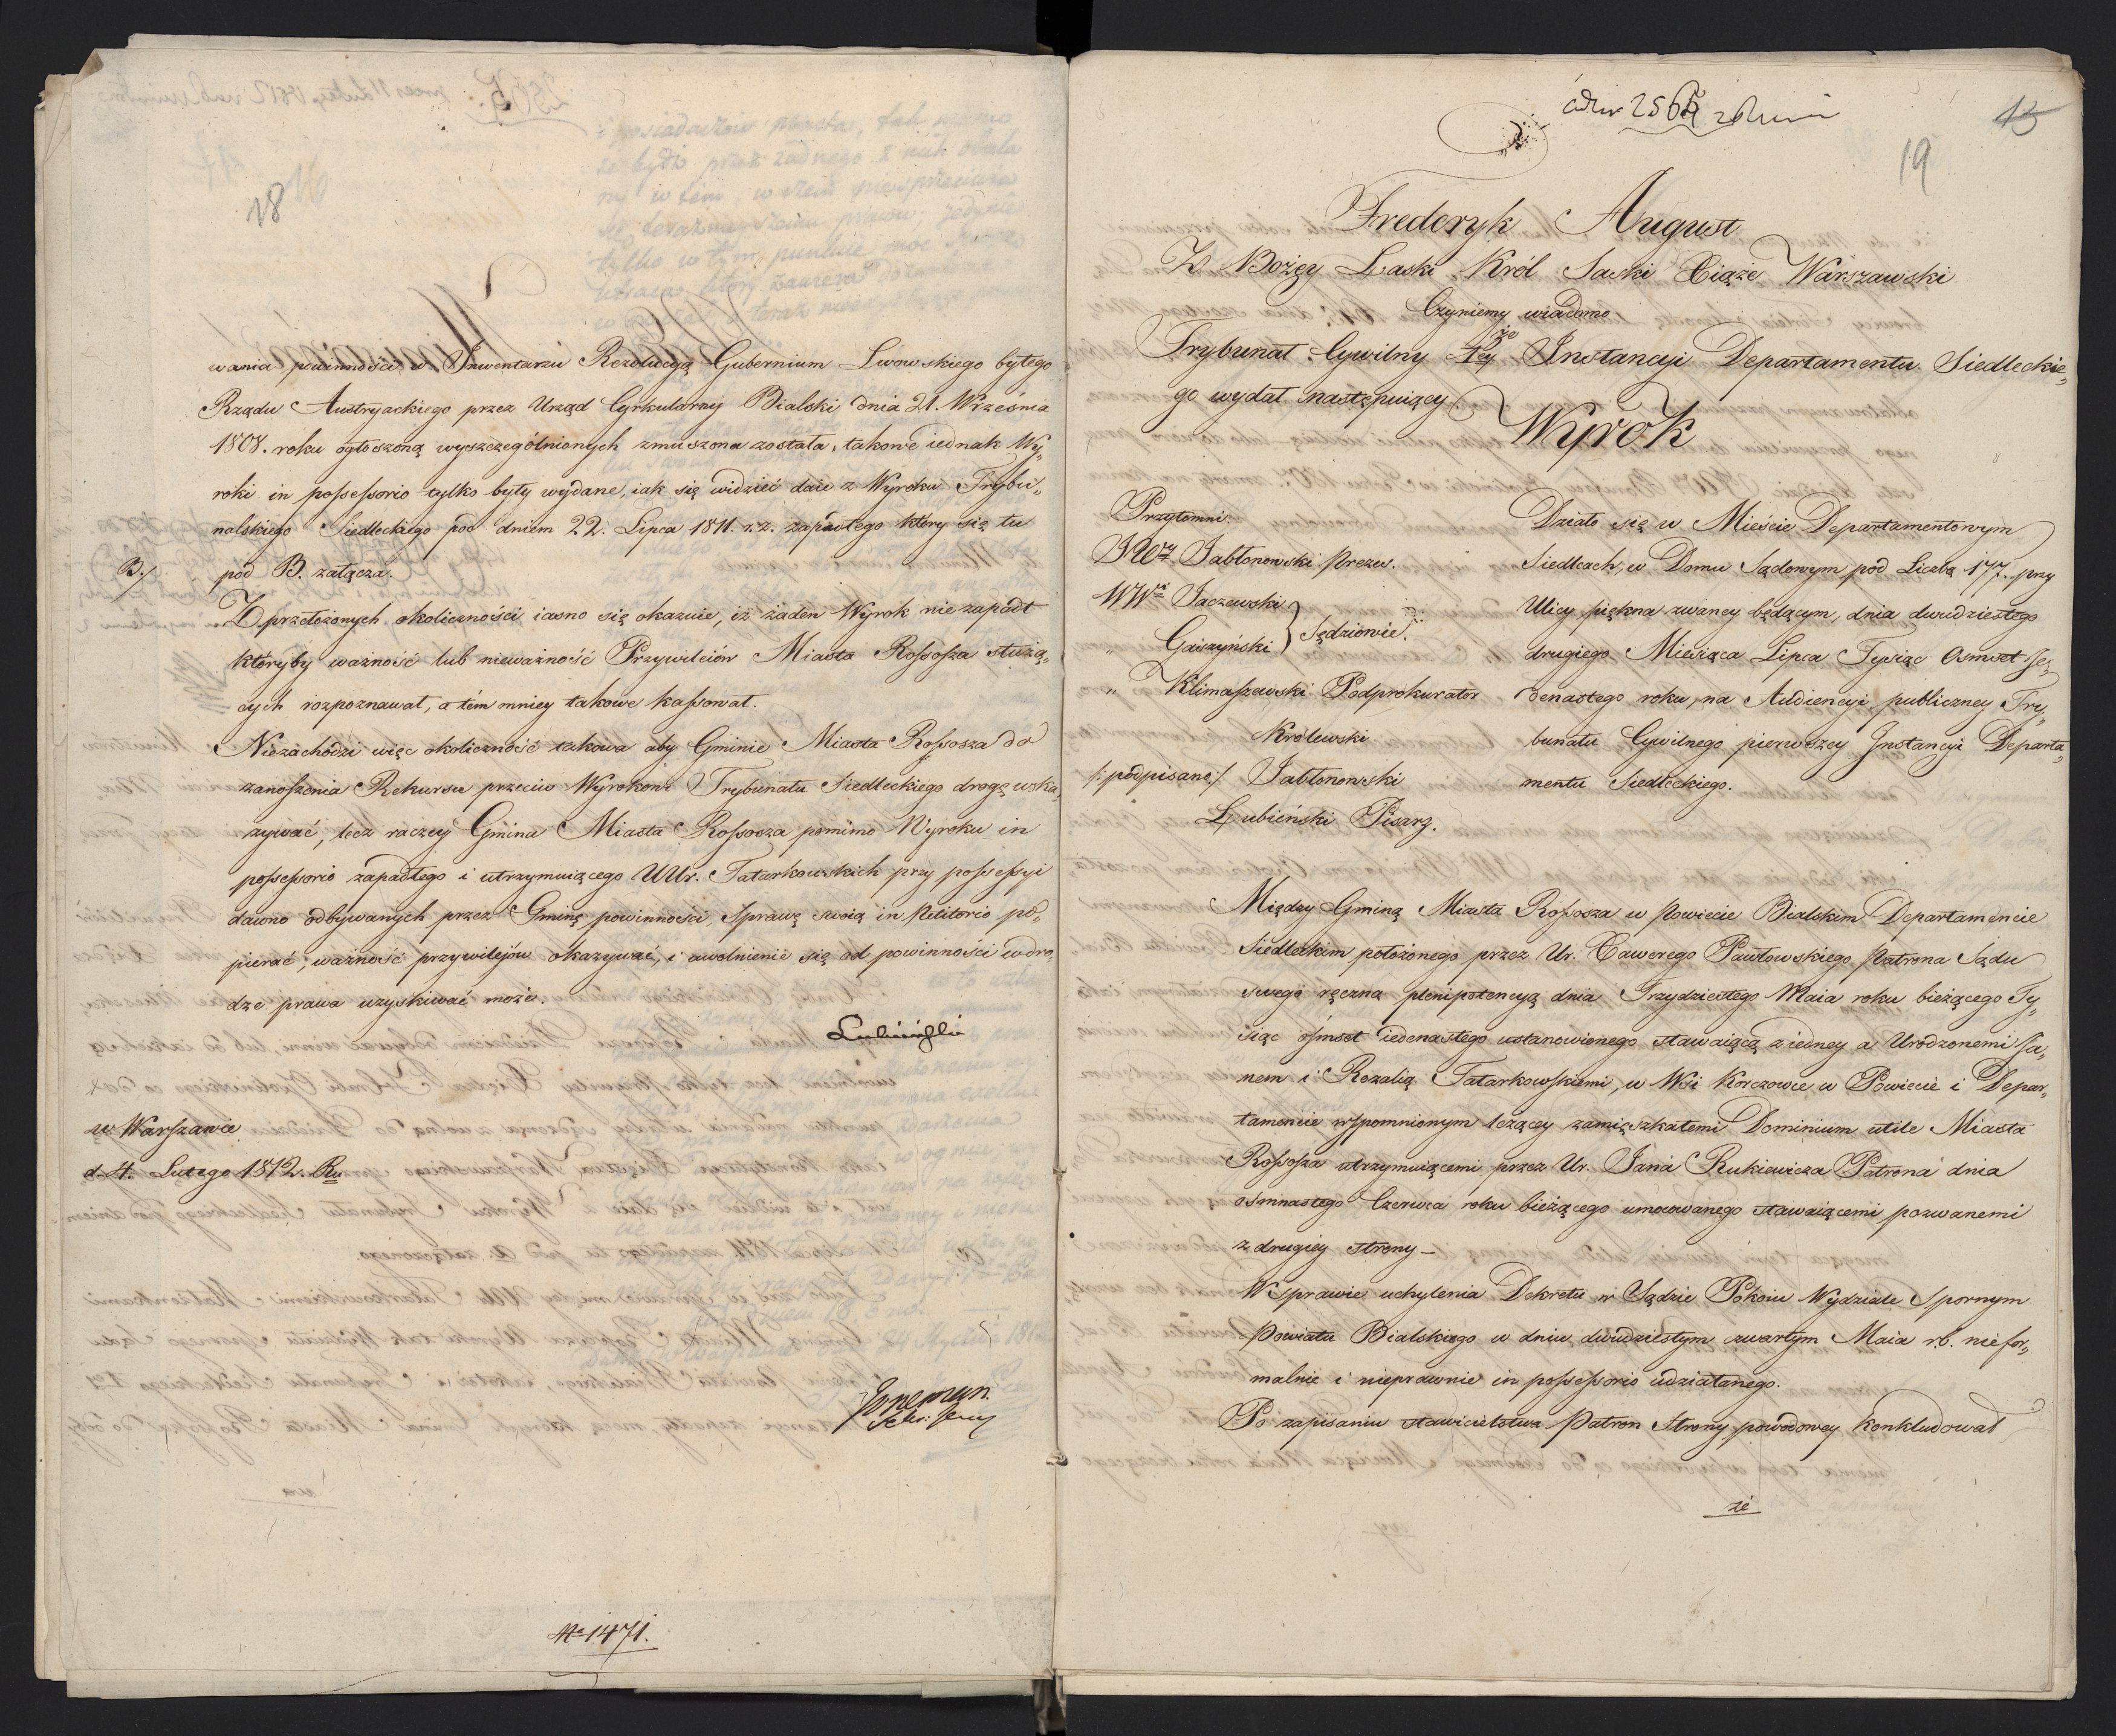 18
wania powinności w Inwentarzu Rezolucyą Gubernium Lwowskiego byłego
Rządu Austryackiego przez Urząd Cyrkularny Bialski dnia 21. Września
1808. roku ogłoszoną wyszczególnionych zmuszona została, takowe iednak Wy„
roki in possessorio tylko były wydane, iak się widzieć daie z Wyroku Trybu„
nalskiego Siedleckiego pod dniem 22. Lipca 1811. r. z. zapadłego który się tu
B./ pod B. załącza.
Z przełożonych okoliczności iasno się okazuie, iż żaden Wyrok nie zapadł
któryby ważność lub nieważność Przywileiów Miasta Rossosza służą„
cych rozpoznawał, a tém mniey takowe kassował.
Niezachodzi więc okoliczność takowa aby Gminie Miasta Rossosza do
zanoszenia Rekursu przeciw Wyrokowi Trybunału Siedleckiego drogę wska„
zywać, lecz raczey Gmina Miasta Rossosza pomimo Wyroku in
possessorio zapadłego i utrzymuiącego UUr. Tatarkowskich przy possessyi
dawno odbywanych przez Gminę powinności, Sprawę swoią in Petitorio po„
pierać, ważność przywilejów okazywać, i uwolnienie się od powinności w dro„
dze prawa uzyskiwać może.
Lubieński
w Warszawie
d. 4. Lutego 1812. Ru
Sekr: Jener
No 1471.
2565
15
19
Frederyk August
Z Bożey Łaski Król Saski Xiąże Warszawski
Czyniemy wiadomo
że
Trybunał Cywilny 1ey Instancyi Departamentu Siedleckie„
go wydał następuiący
Wyrok
Przytomni.
JWż Jabłonowski Prezes.
WWni Jaczewski
„ Gaiszyński } Sędziowie.
„ Klimaszewski Podprokurator
Królewski
/:podpisano:/ Jabłonowski
Łubieński Pisarz.
Działo się w Mieście Departamentowym
Siedlcach, w Domu Sądowym pod Liczbą 177. przy
Ulicy piękna zwaney będącym, dnia dwudziestego
drugiego Miesiąca Lipca Tysiąc Osmset Je„
denastego roku, na Audiencyi publiczney Try„
bunału Cywilnego pierwszey Instancyi Departa„
mentu Siedleckiego.
Między Gminą Miasta Rossosza w Powiecie Bialskim Departamencie
Siedleckim położonego przez Ur. Xawerego Pawłowskiego Patrona Sądu
swego ręczną plenipotencyą dnia Trzydziestego Maia roku bieżącego Ty„
siąc ósmset iedenastego ustanowionego stawaiącą z iedney a Urodzonemi Ja„
nem i Rozalią Tatarkowskiemi, w Wsi Korczowce w Powiecie i Depar„
tamencie wspomnionym leżącey zamięszkałemi Dominium utile Miasta
Rossosza utrzymuiącemi przez Ur. Jana Rukiewicza Patrona dnia
osmnastego Czerwca roku bieżącego umocowanego stawaiącemi pozwanemi
z drugiey strony –
W Sprawie uchylenia Dekretu w Sądzie Pokoiu Wydziale Spornym
Powiatu Bialskiego w dniu dwudziestym czwartym Maia r.b. niefor„
malnie i nieprawnie in possessorio udziałanego.
Po zapisaniu stawicielstwa Patron Strony powodowey konkludował
że